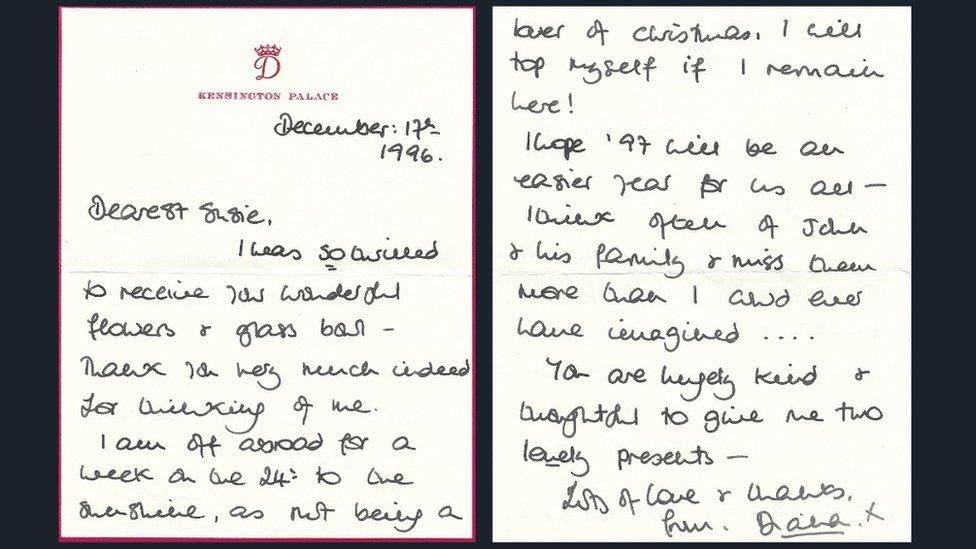 D
KENSINGTON PALACE
December: 17th
1996.
Dearest Susie,
I was so thrilled
to receive your wonderful
flowers & glass ball –
Thank you very much indeed
for thinking of me.
I am off abroad for a
week on the 24th to the
sunshine, as not being a
lover of christmas, I will
top myself if I remain
here!
I hope '97 will be an
easier year for us all –
I think often of John
& his family & miss them
more than I could ever
have imagined ....
You are hugely kind &
thoughtful to give me two
lovely presents –
Lots of love & thanks,
from. Diana. x